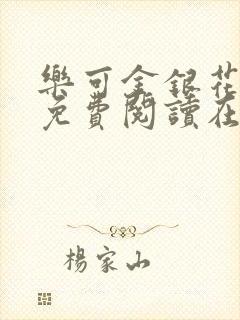 樂可金銀花
免費閱讀在
楊家山